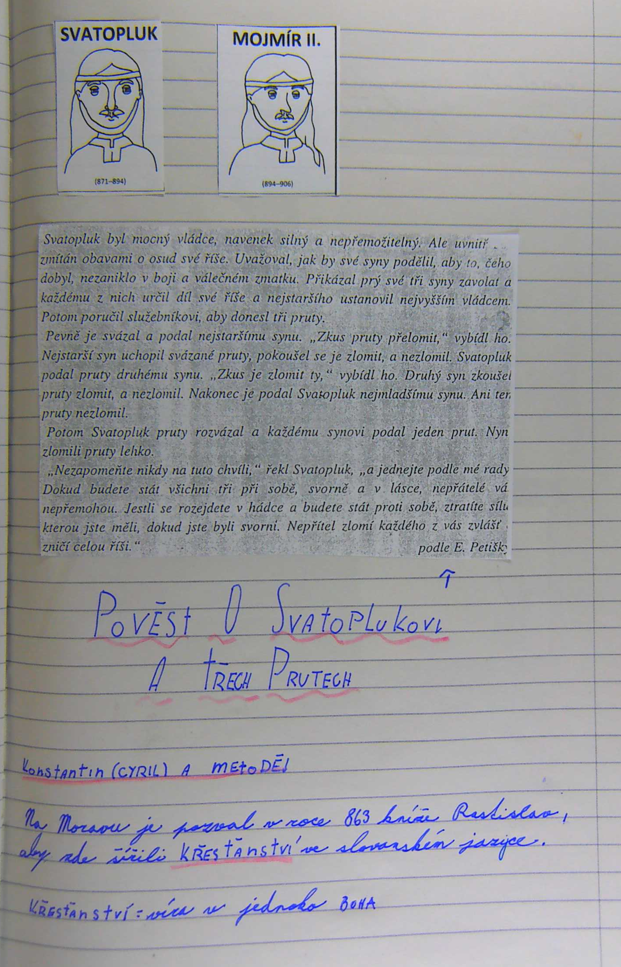 SVATOPLUK
(871–894)
MOJMÍR II.
(894–906)
Svatopluk byl mocný vládce, navenek silný a nepřemožitelný. Ale uvnitř
zmítán obavami o osud své říše. Uvažoval, jak by své syny podělil, aby to, čeho
dobyl, nezaniklo v boji a válečném zmatku. Přikázal prý své tři syny zavolat a
každému z nich určil díl své říše a nejstaršího ustanovil nejvyšším vládcem.
Potom poručil služebníkovi, aby donesl tři pruty.
Pevně je svázal a podal nejstaršímu synu. „Zkus pruty přelomit,“ vybídl ho.
Nejstarší syn uchopil svázané pruty, pokoušel se je zlomit, a nezlomil. Svatopluk
podal pruty druhému synu. „Zkus je zlomit ty,“ vybídl ho. Druhý syn zkoušel
pruty zlomit, a nezlomil. Nakonec je podal Svatopluk nejmladšímu synu. Ani ten
pruty nezlomil.
Potom Svatopluk pruty rozvázal a každému synovi podal jeden prut. Nyn
zlomili pruty lehko.
„Nezapomeňte nikdy na tuto chvíli,“ řekl Svatopluk, „a jednejte podle mé rady
Dokud budete stát všichni tři při sobě, svorně a v lásce, nepřátelé vá
nepřemohou. Jestli se rozejdete v hádce a budete stát proti sobě, ztratíte sílu
kterou jste měli, dokud jste byli svorni. Nepřítel zlomí každého z vás zvlášť
zničí celou říši.“ podle E. Petišk
↑
POVĚSt O SVAtOPLUKOVI
A tŘECH PRUTECH
Konstantin (CYRIL) A MEtODĚJ
Na Moravu je pozval v roce 863 kníže Rastislav,
aby zde šířili KŘESŤANStVÍ ve slovanském jazyce.
KŘESŤANStVÍ = víra v jednoho BOHA